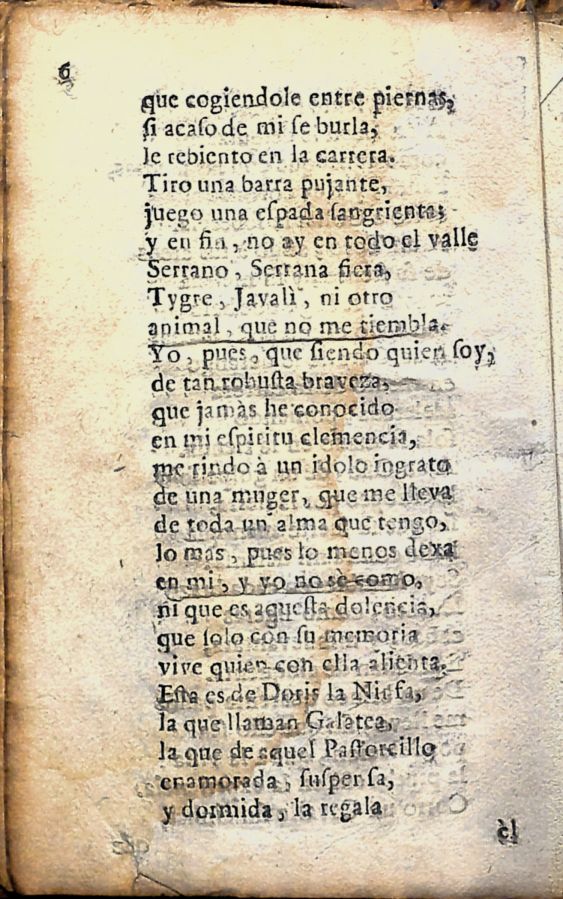 6
que cogiendole entre piernas,
ſi acaſo de mi ſe burla,
le rebiento en la carrera.
Tiro una barra pujante,
juego una eſpada ſangrienta;
y en fin, no ay en todo el valle
Serrano, Serrana fiera,
Tygre, Javalì, ni otro
animal, que no me tiembla.
Yo, pues, que ſiendo quien ſoy,
de tan robuſta braveza,
que jamàs he conocido
en mi eſpiritu clemencia,
me rindo à un idolo ingrato
de una muger, que me lleva
de toda un alma que tengo,
lo mas, pues lo menos dexa
en mi, y yo no sè como,
ni que es aqueſta dolencia,
que ſolo con ſu memoria
vive quien con ella alienta.
Eſta es de Doris la Ninfa,
la que llaman Galatea,
la que de aquel Paſtorcillo
enamorada, ſuſpenſa,
y dormida, la regala
èl